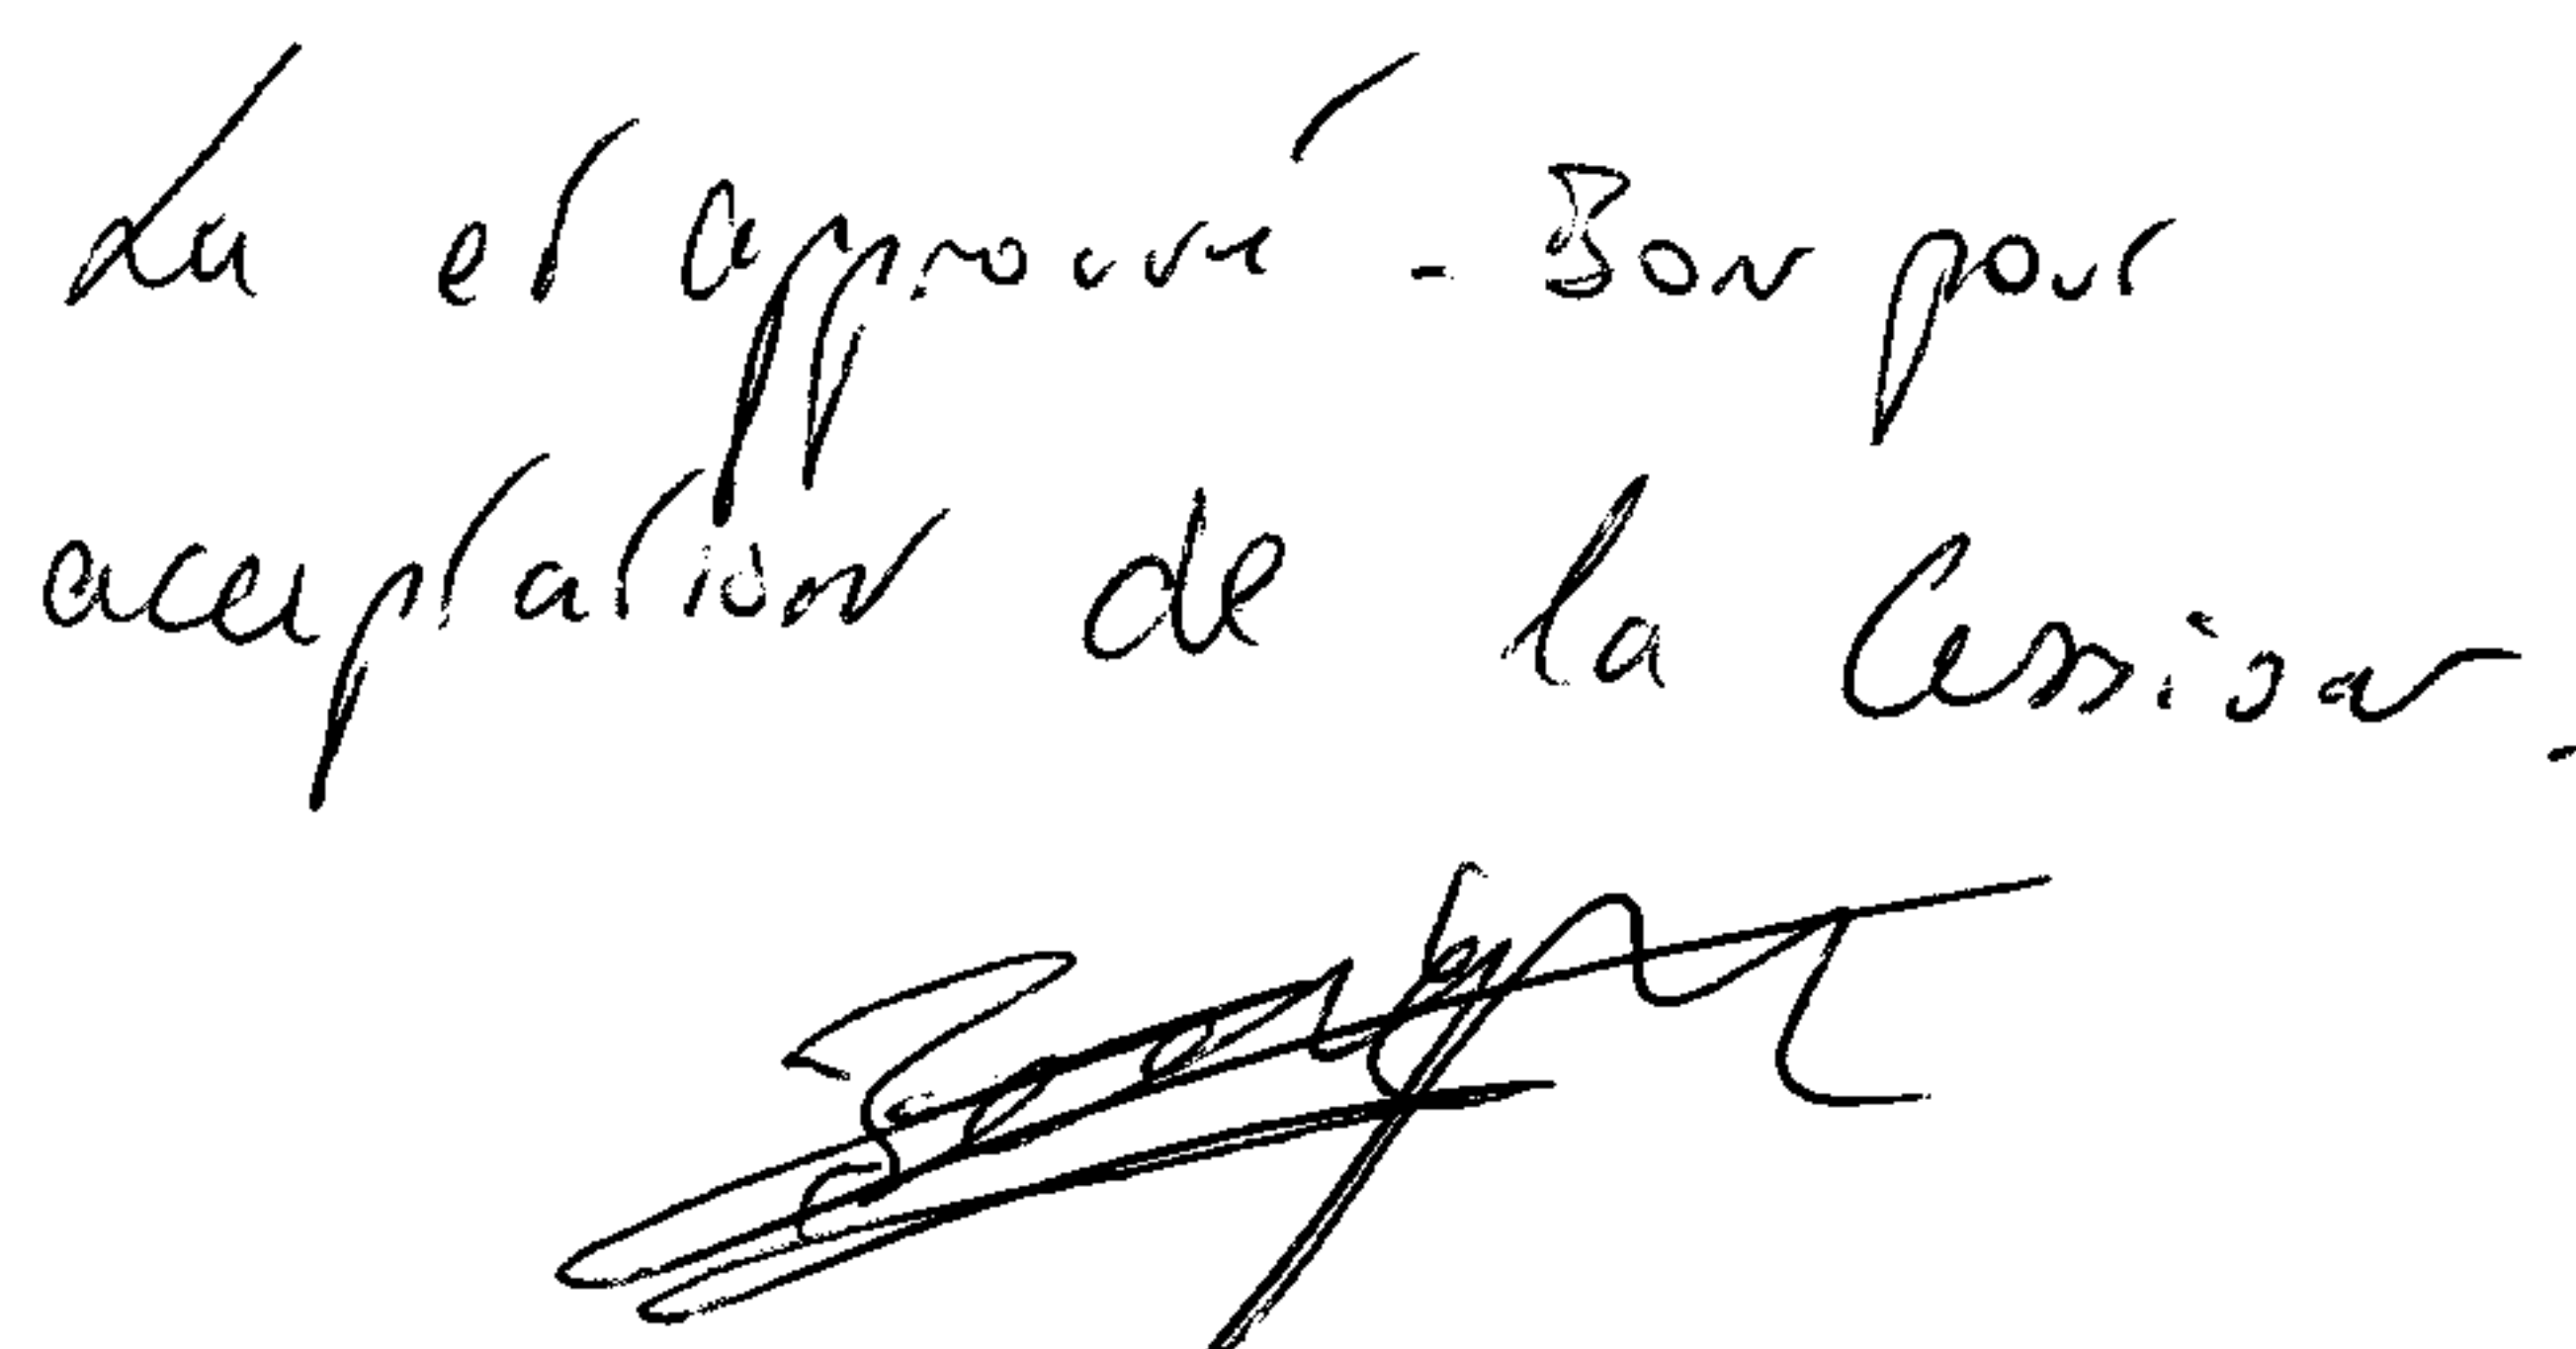 Lu et approuvé - Bon pour
acceptation de la Cession.